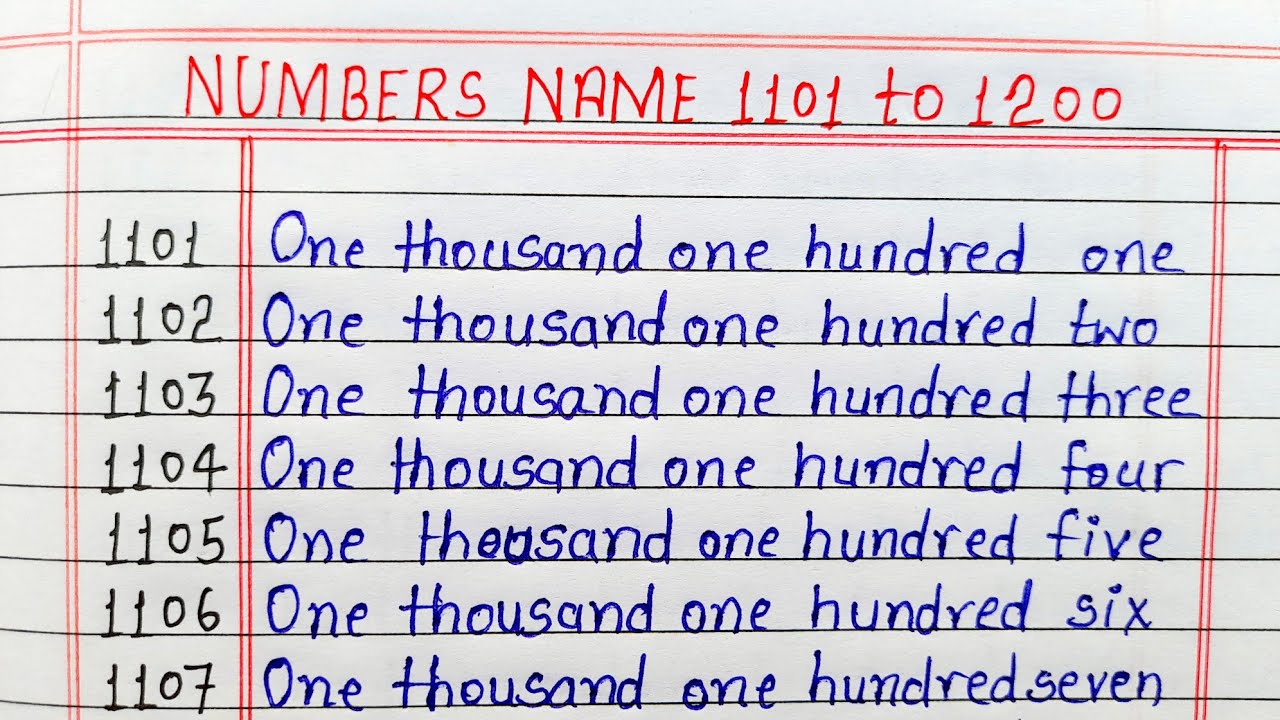 NUMBERS NAME 1101 to 1200
1101 One thousand one hundred one
1102 One thousand one hundred two
1103 One thousand one hundred three
1104 One thousand one hundred four
1105 One thousand one hundred five
1106 One thousand one hundred six
1107 One thousand one hundred seven